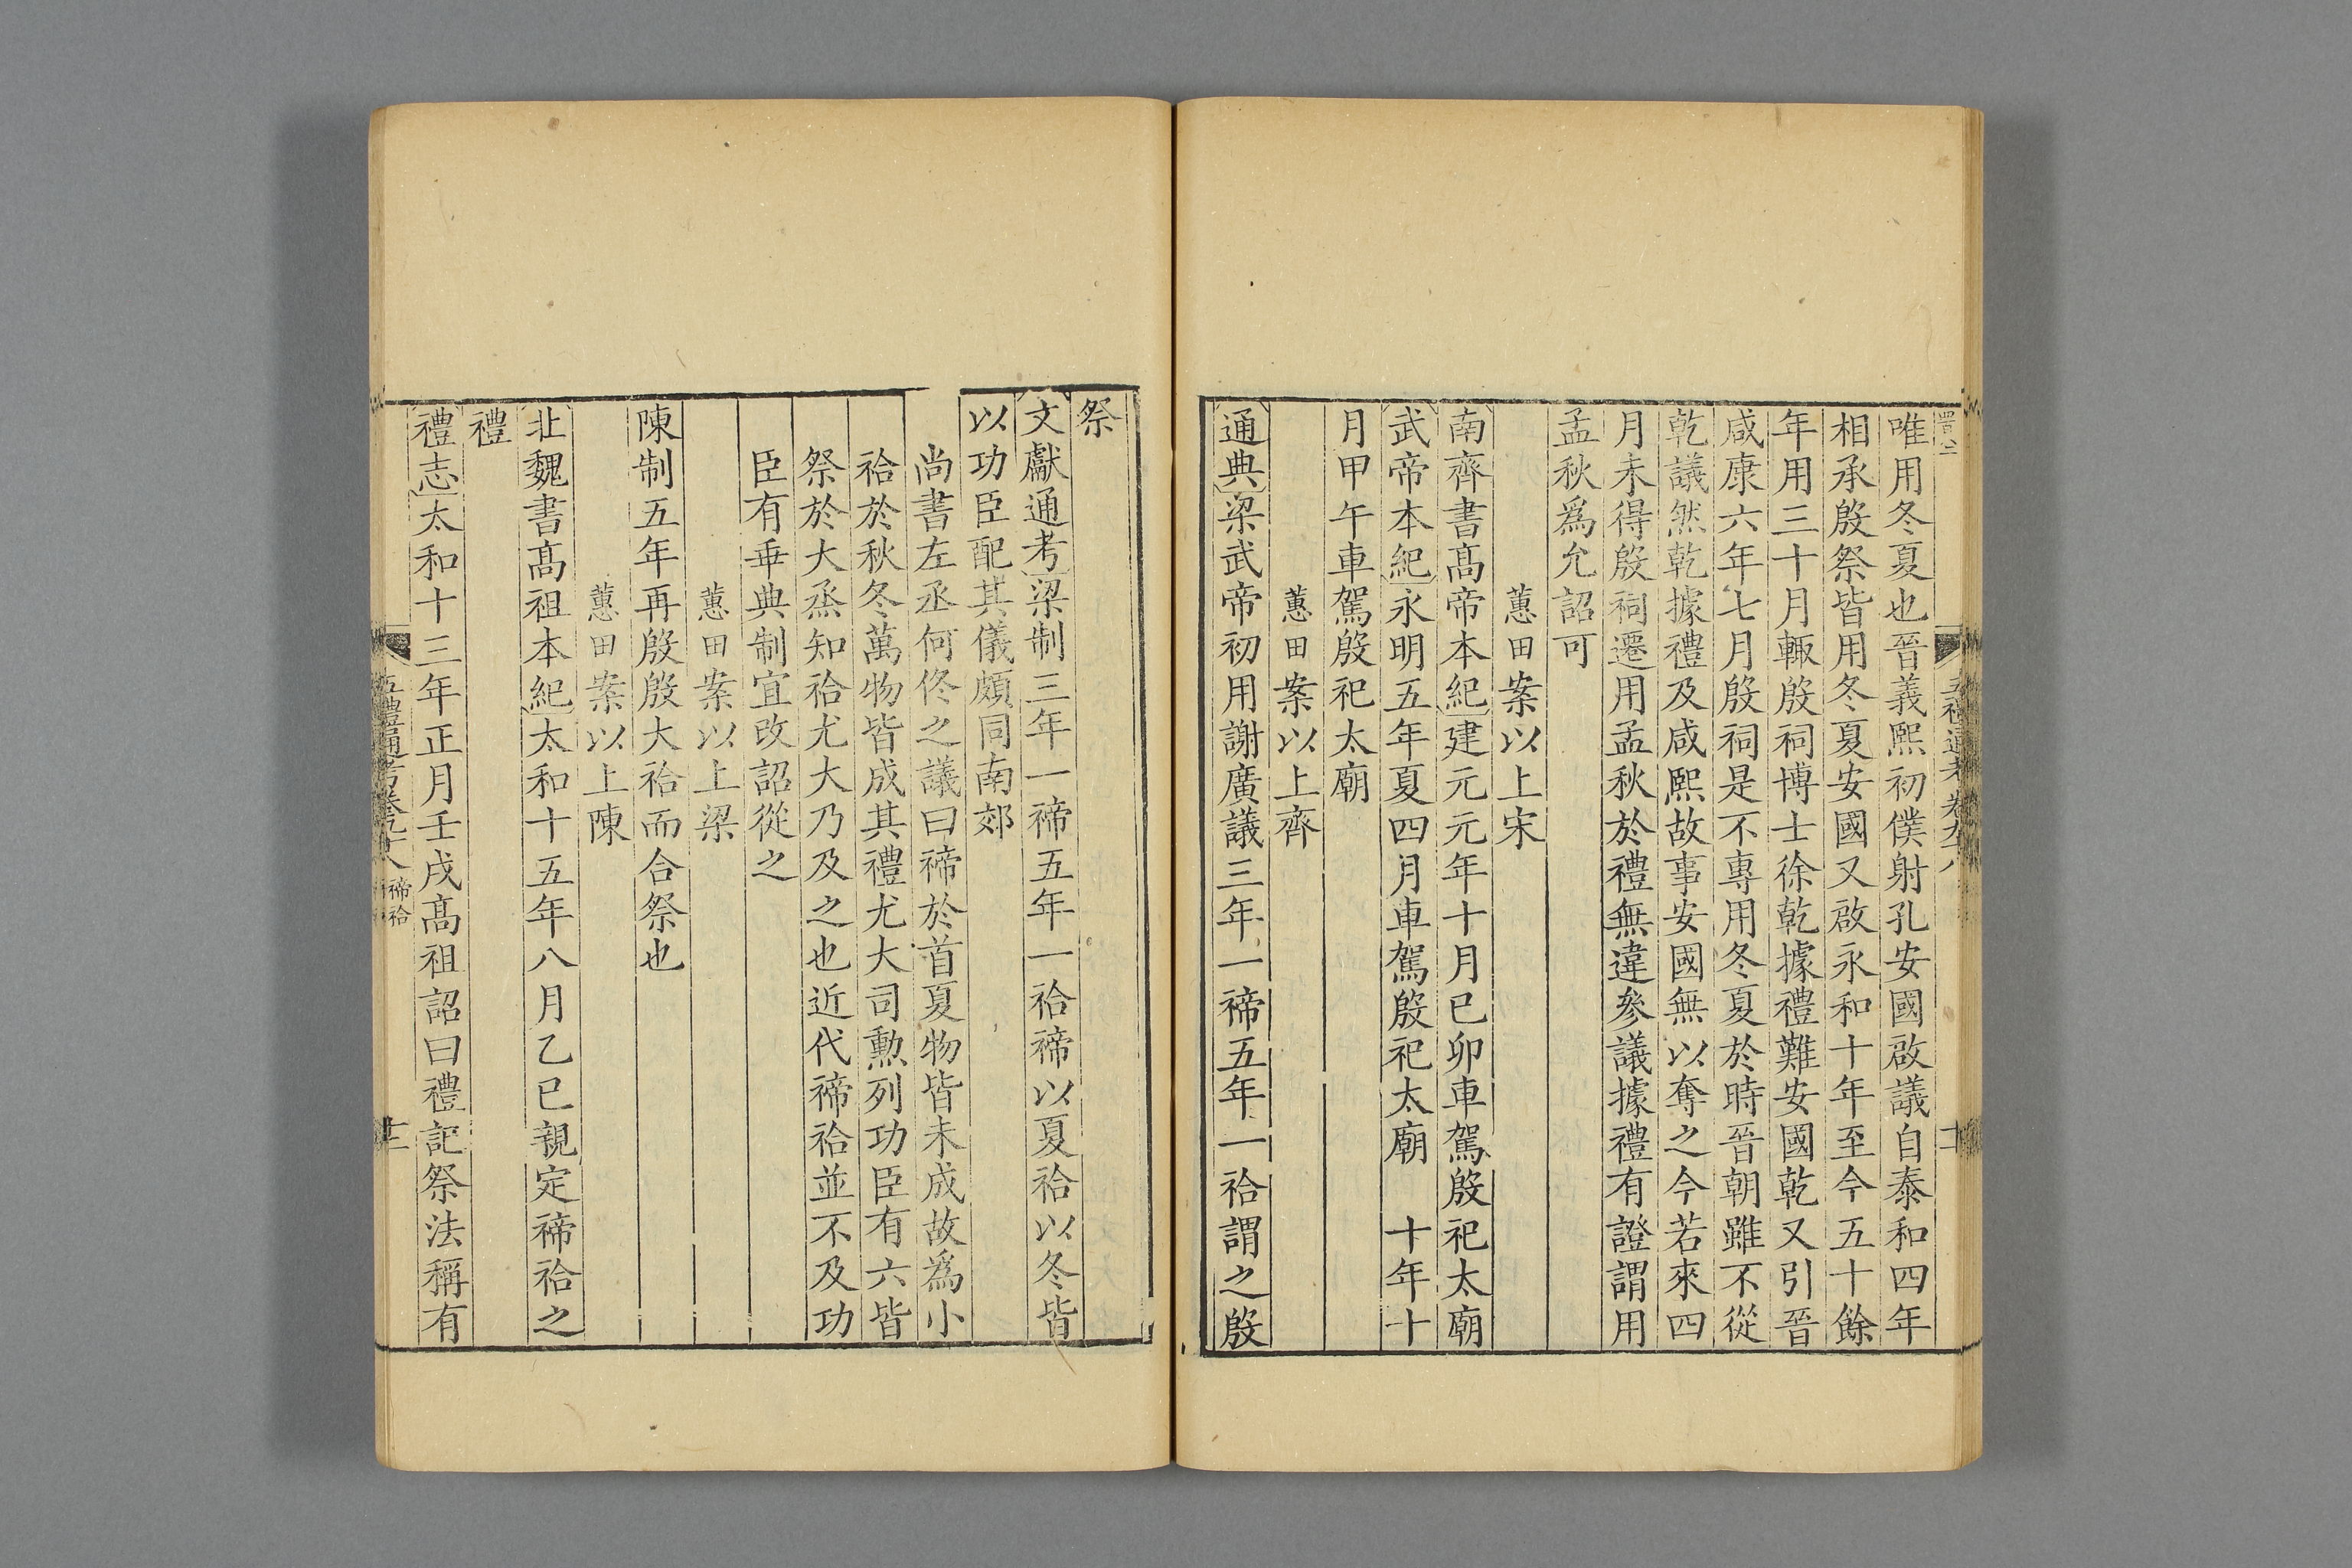 唯用冬夏也晉義熙初僕射孔安國啟議自泰和四年
相承殷祭皆用冬夏安國又啟永和十年至今五十餘
年用三十月輒殷祠博士徐乾據禮難安國乾又引晉
咸康六年七月殷祠是不專用冬夏於時晉朝雖不從
乾議然乾據禮及咸熙故事安國無以奪之今若來四
月未得殷祠遷用孟秋於禮無違參議據禮有證謂用
孟秋爲允詔可
蕙田案以上宋
南齊書髙帝本紀建元元年十月已卯車駕殷祀太廟
武帝本紀永明五年夏四月車駕殷祀太廟 十年十
月甲午車駕殷祀太廟
蕙田案以上齊
通典梁武帝初用謝廣議三年一禘五年一祫謂之殷
祭
文獻通考梁制三年一禘五年一祫禘以夏祫以冬皆
以功臣配其儀頗同南郊
尚書左丞何佟之議曰禘於首夏物皆未成故爲小
祫於秋冬萬物皆成其禮尤大司勲列功臣有六皆
祭於大烝知祫尤大乃及之也近代禘祫並不及功
臣有乖典制宜改詔從之
蕙田案以上梁
陳制五年再殷殷大祫而合祭也
蕙田案以上陳
北魏書髙祖本紀太和十五年八月乙已親定禘祫之
禮
禮志太和十三年正月壬戌髙祖詔曰禮記祭法稱有
五禮通考卷九十八 禘祫